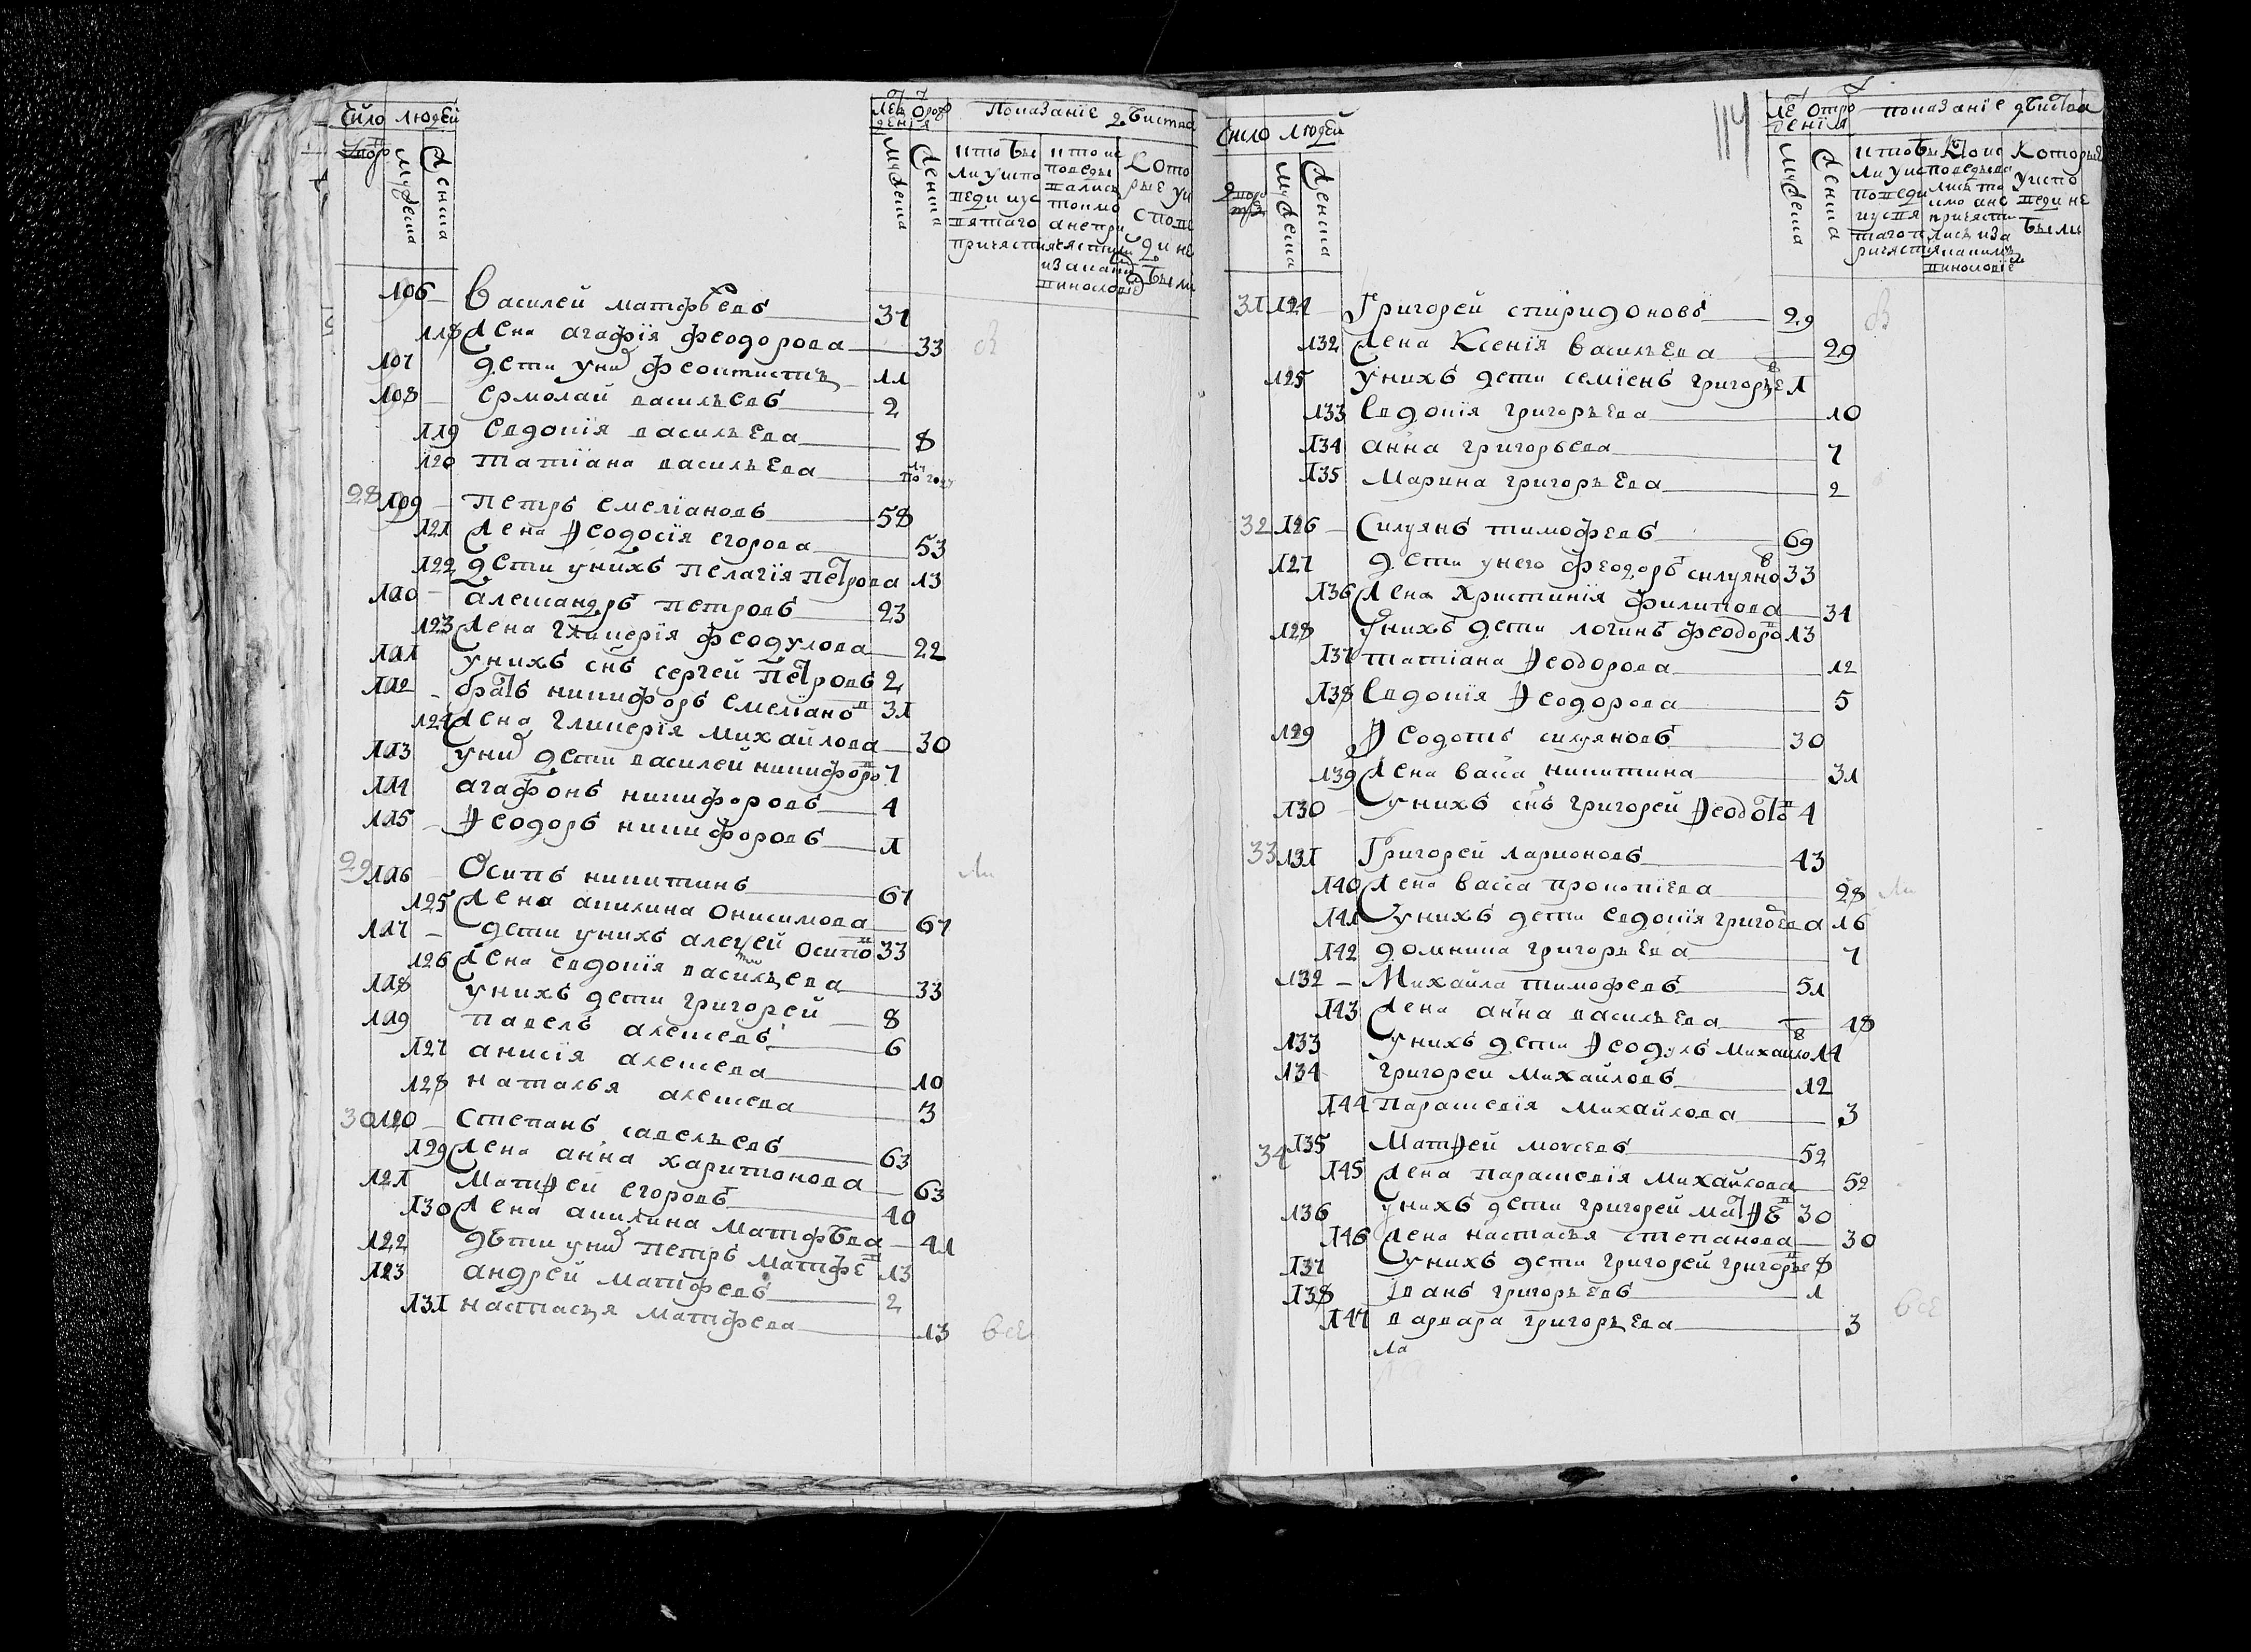 Число людей
Двор
Мужеска
Женска
Лет от рож
дения
Показание действа
Мужеска
Женска
кто бы
ли у испо
веди и с
вятаго
причастия
кто ис
поведы
вались
токмо
а не при
частили
и за каки
виновсто
Кото
рые у и
спове
ди не
были
106 Василей матфѣевъ 37
118 Жена агафїя феодорова 33
107 дети у них феоктистъ 11
108 Ермолай васильевъ 2
119 Евдокїя васильева 8
120 татїана васильева
28 109 петръ емелїановъ 58
121 Жена Ѳеодосїя егорова 53
122 дети у нихъ пелагїя петрова 13
110 александръ петровъ 23
123 Жена гликерїя феодулова 22
111 у нихъ снъ сергей петровъ 2
112 братъ никифоръ емелїано в 31
124 Жена гликерїя михайлова 30
113 у них дети василей никифоро в 7
114 агафонъ никифоровъ 4
115 Ѳеодоръ никифоровъ 1
29 116 Осипъ никитинъ 67
125 Жена акилина онисимова 67
117 дети у нихъ алексей осипо в 33
126 Жена евдокїя васильева 33
118 у нихъ дети григорей 8
119 павелъ алексевъ 6
127 анисїя алексева 10
128 наталья алексева 3
30 120 Степанъ савельевъ 63
129 Жена анна харитонова 63
121 Матѳей егоровъ 40
130 Жена акилина матфѣева 41
122 дѣти у них петръ матфе в 13
123 андрей матфевъ 2
131 настасья матфева 13 все
114
Число людей
Мужеска
Женска
Ле от ро
дения
Показание действа
Мужеска
Женска
кто бы
ли у ис
поведи
и свя
таго п
ричастия
Которые
у испо
веди не
были
31 124 Григорей спиридоновъ 29
132 Жена Ксенїя васильева 29
125 у нихъ дети семїенъ григорье в 1
133 Евдокїя григорьева 10
134 анна григорьева 7
135 Марина григорьева 2
32 126 Силуянъ тимофевъ 69
127 дети у него феодоръ силуяно в 33
136 Жена христинїя филипова 34
128 у нихъ дети логинъ феодоро в 13
137 татїана Ѳеодорова 12
138 Евдокїя Ѳеодорова 5
129 Ѳеодотъ силуяновъ 30
139 Жена васса никитина 31
130 у нихъ снъ григорей Ѳеодото в 4
33 131 Григорей ларионовъ 43
140 Жена васса прокопїева 28
141 у нихъ дети евдокїя григорева 16
142 домника григорьева 7
132 Михайла тимофевъ 51
143 Жена анна васильева 48
133 у нихъ дети Ѳеодулъ михайло в 14
134 григорей михайловъ 12
144 Параскевїя михайлова 3
34 135 Матѳей мовсевъ 52
145 Жена параскевїя михайлова 52
136 у нихъ дети григорей матѳе в 30
146 Жена настасья степанова 30
137 у нихъ дети григорей григорье в 8
138 Іванъ григорьевъ 1
147 варвара григорьева 3 все
ла